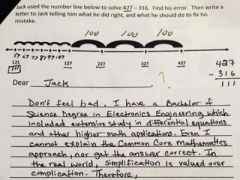 Jack used the number line below to solve 427 – 316. Find his error. Then write a
letter to Jack telling him what he did right, and what he should do to fix his
mistake.
100 100 100
127 227 327 427
427
- 316
111
Dear Jack
Don't feel bad. I have a Bachelor of
Science Degree in Electronics Engineering which
included extensive study in differential equations
and other higher math applications. Even I
cannot explain the Common Core mathematics
approach, nor get the answer correct. In
the real world, simplification is valued over
complication. Therefore,